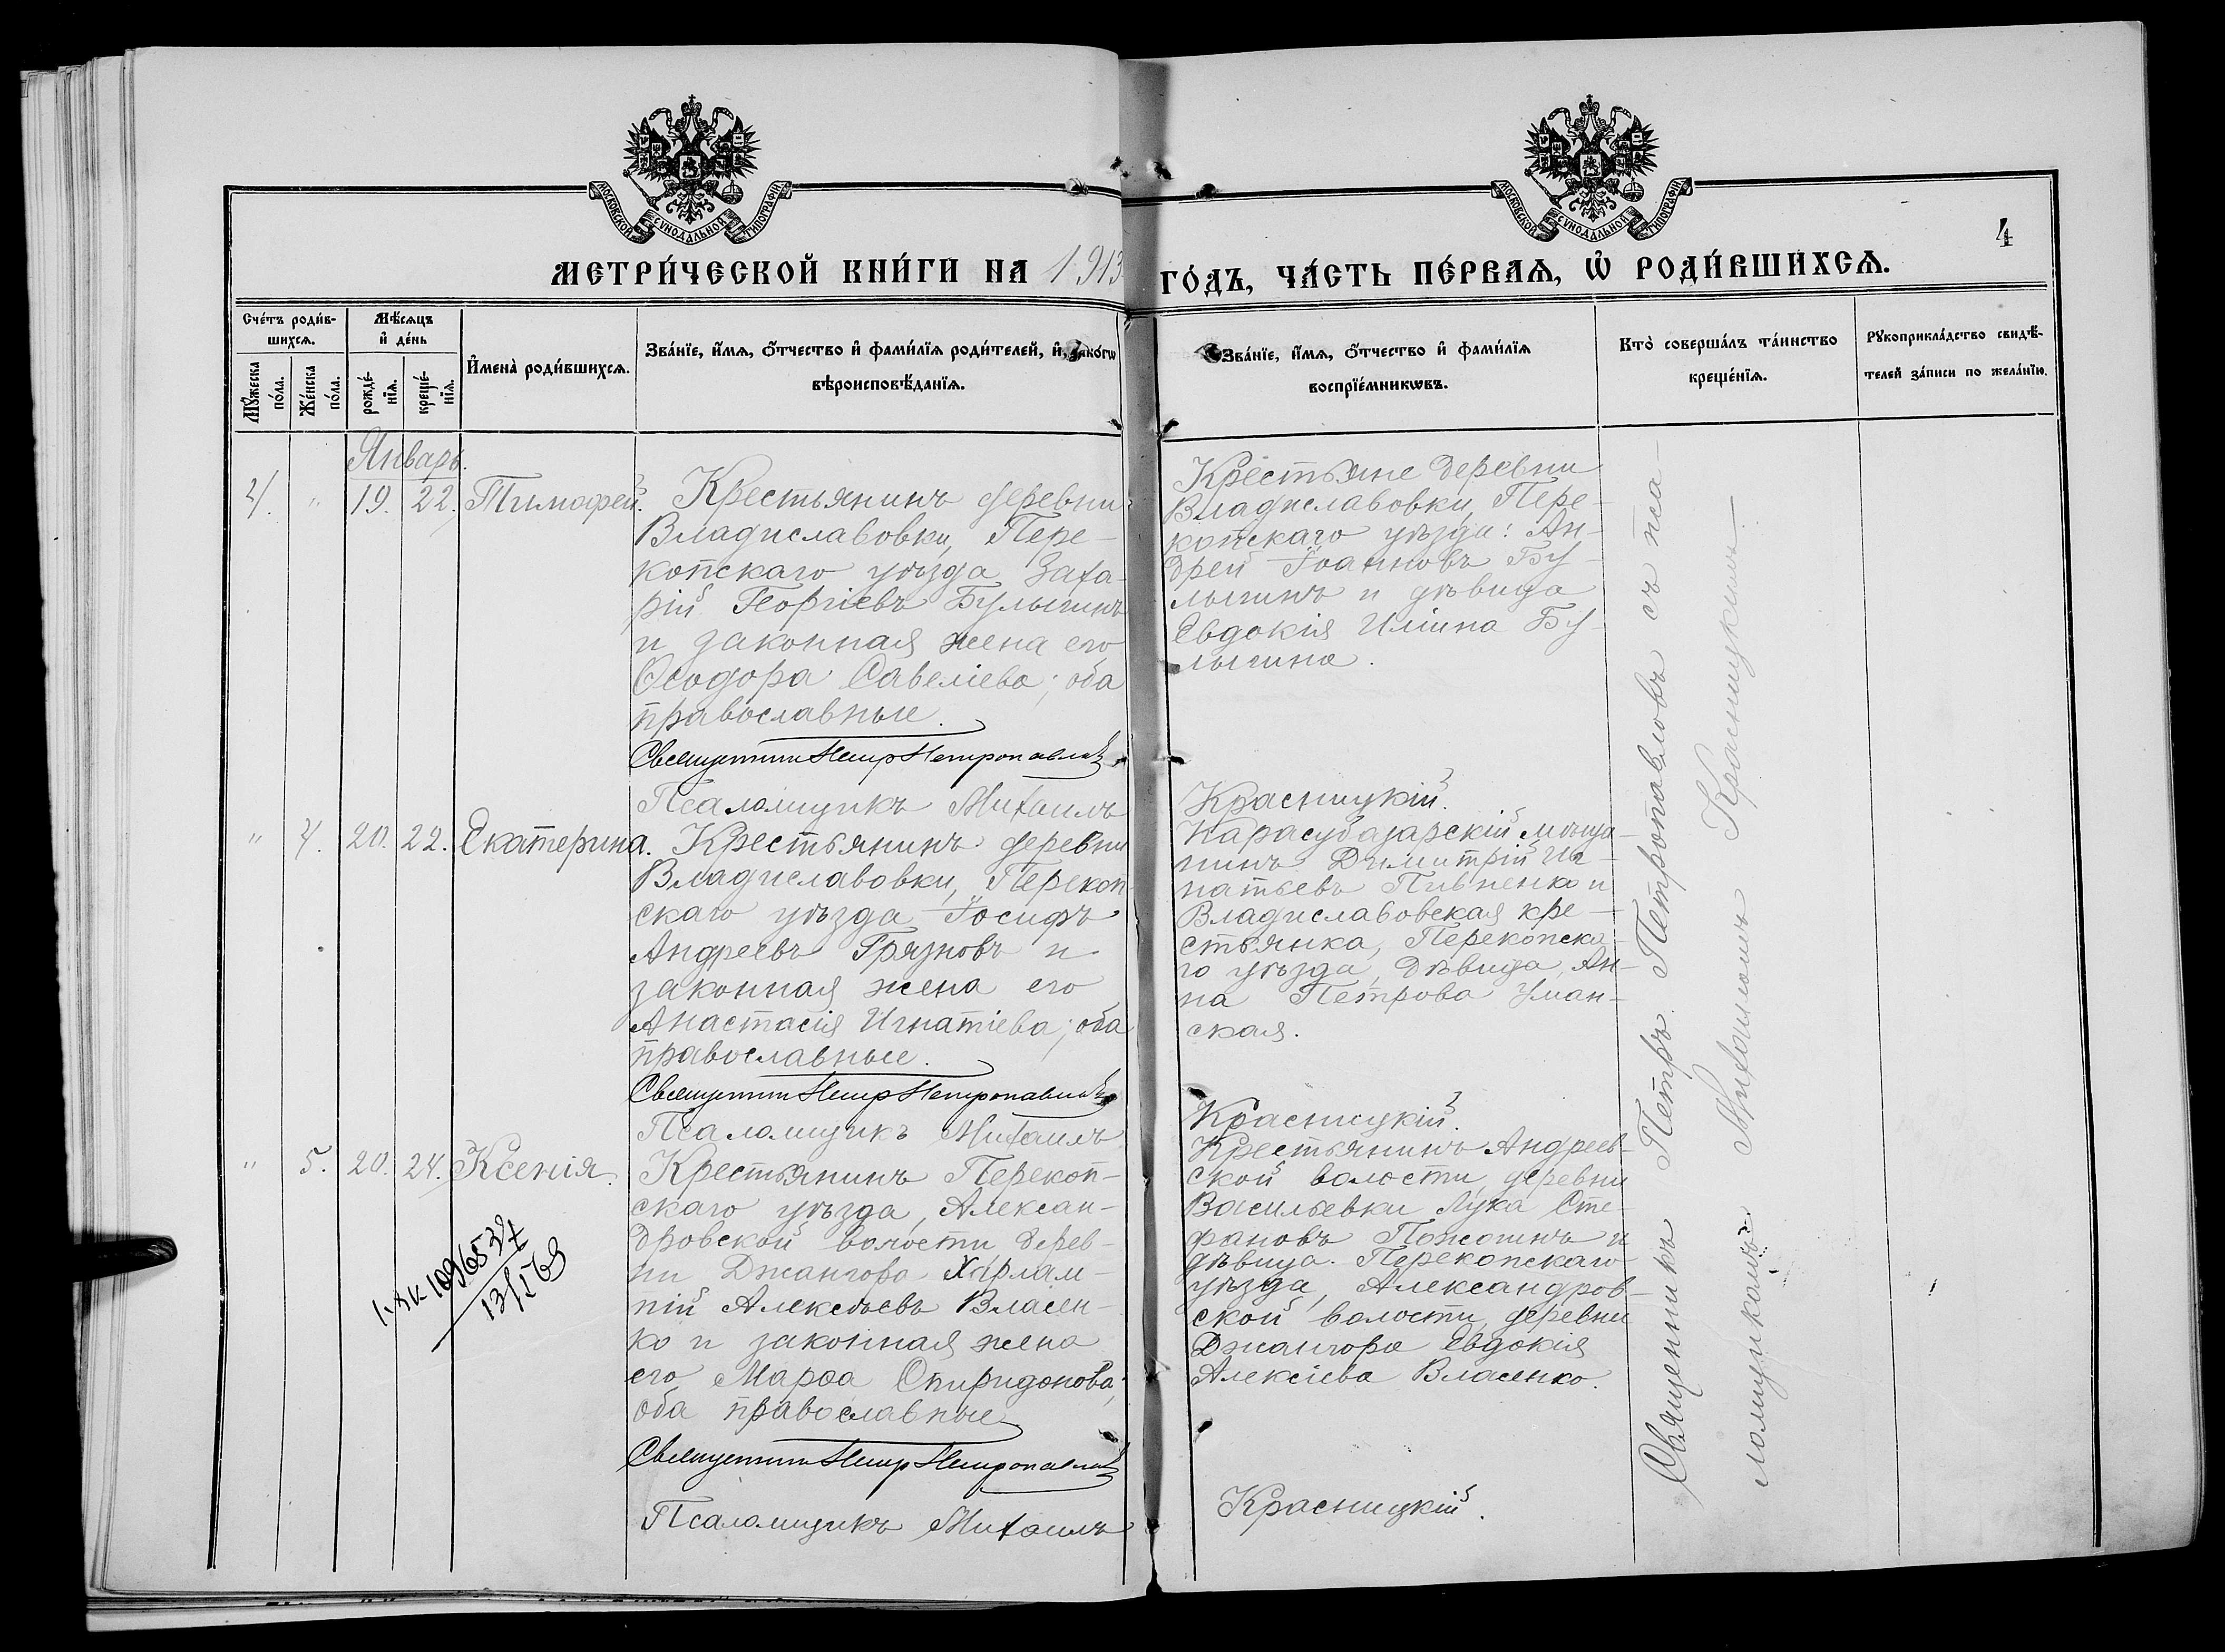 МОСКОВСКОЙ СѴНОДАЛЬНОЙ ТИПОГРАФІИ
МОСКОВСКОЙ СѴНОДАЛЬНОЙ ТИПОГРАФІИ
4
МЕТРИ́ЧЕСКОЙ КНИ́ГИ НА 1913 ГО́ДЪ, ЧА́СТЬ ПЕ́РВАѦ, Ѡ҆ РОДИ́ВШИХСѦ.
Сче́тъ роди́в-
шихсѧ.
Мꙋ́жеска по́ла.
Же́нска по́ла.
Мѣ́сѧцъ
и҆ де́нь
рожде́-
нїѧ.
креще́-
нїѧ.
И҆мена̀ роди́вшихсѧ.
Зва́нїе, и҆́мѧ, ѻ҆́тчество и҆ фами́лїѧ роди́телей, и҆ како́гѡ
вѣроисповѣ́данїѧ.
Зва́нїе, и҆́мѧ, ѻ҆́тчество и҆ фами́лїѧ
воспрїе́мникѡвъ.
Кто̀ соверша́лъ та́инство
креще́нїѧ.
Рꙋкоприкла́дство свидѣ́-
телей за́писи по жела́нїю.
Январь.
4. " 19. 22. Тимофей.
Крестьянинъ деревни
Владиславовки, Пере-
копскаго уѣзда Заха-
рій Георгіевъ Булыгинъ
и законная жена его
Ѳеодора Савеліева; оба
православные.
Священникъ Петръ Петропавловъ
Псаломщикъ Михаилъ
Крестьяне деревни
Владиславовки, Пере-
копскаго уѣзда: Ан-
дрей Іоанновъ Бу-
лыгинъ и дѣвица
Евдокія Иліина Бу-
лыгина.
Красницкій.
" 4. 20. 22. Екатерина.
Крестьянинъ деревни
Владиславовки, Перекоп-
скаго уѣзда Іосифъ
Андреевъ Грязновъ и
законная жена его
Анастасія Игнатіева; оба
православные.
Священникъ Петръ Петропавловъ
Псаломщикъ Михаилъ
Карасубазарскій мѣща-
нинъ Димитрій Иг-
натьевъ Пивненко и
Владиславовская кре-
стьянка, Перекопска-
го уѣзда, дѣвица, Ан-
на Петрова Уман-
ская.
Красницкій.
" 5. 20. 24. Ксенія.
Крестьянинъ Перекоп-
скаго уѣзда, Алексан-
дровской волости, дерев-
ни Джангора Харлам-
пій Алексѣевъ Власен-
ко и законная жена
его Марѳа Спиридонова;
оба православные
Священникъ Петръ Петропавловъ
Псаломщикъ Михаилъ
Крестьянинъ Андреев-
ской волости, деревни
Васильевки Лука Сте-
фановъ Пожогинъ и
дѣвица Перекопскаго
уѣзда, Александров-
ской волости, деревни
Джангора Евдокія
Алексіева Власенко.
Красницкій.
Священникъ Петръ Петропавловъ съ пса-
ломщикомъ Михаиломъ Красницкимъ